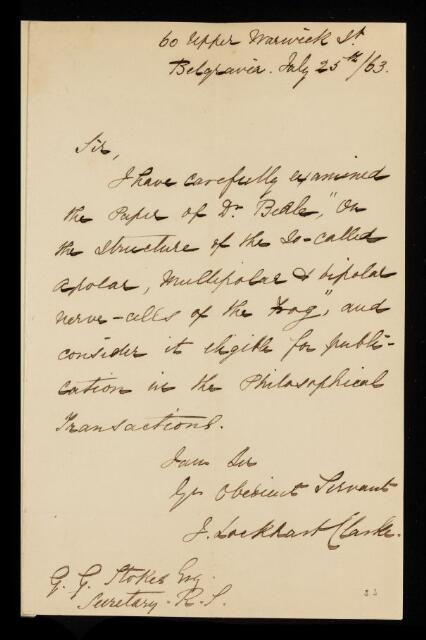 60 Upper Warwick St.
Belgravia. July 25th/63.
Sir,
I have carefully examined
the Paper of Dr. Beale, "On
the structure of the So-called
apolar, multipolar & bipolar
nerve-cells of the Frog", and
consider it eligible for publi-
cation in the Philosophical
Transactions.
I am Sir
Yr. Obedient Servant
J. Lockhart Clarke.
G. G. Stokes Esq.
Secretary. R. S.